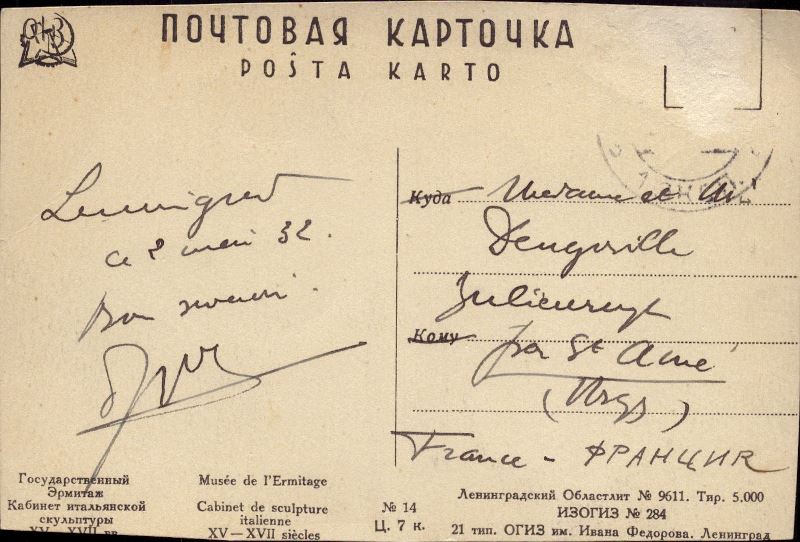 ПОЧТОВАЯ КАРТОЧКА
POŜTA KARTO
Leningrad
ce 8 mai 32.
Bon souvenir.
Куда Madame et Mr
Dengoville
Кому
par St Amé
(Vosges)
France - ФРАНЦИЯ
Государственный
Эрмитаж
Кабинет итальянской
скульптуры
XV—XVII вв.
Musée de l'Ermitage
Cabinet de sculpture
italienne
XV—XVII siècles
№ 14
Ц. 7 к.
Ленинградский Областлит № 9611. Тир. 5.000
ИЗОГИЗ № 284
21 тип. ОГИЗ им. Ивана Федорова. Ленинград